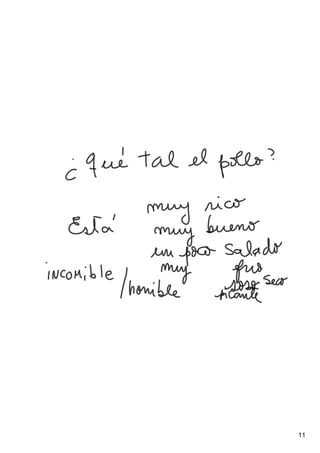 ¿Qué tal el pollo?
muy rico
Está muy bueno
un poco salado
muy frio
soso seco
incomible / horrible picante
11